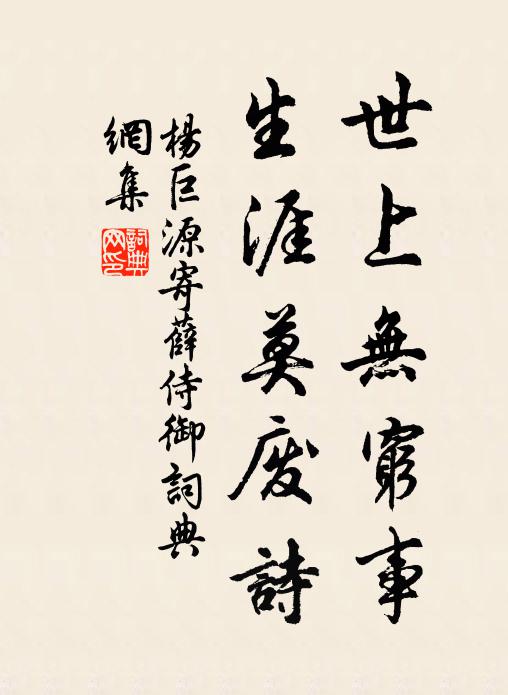 世上無窮事
生涯莫废詩
楊巨源寄薛侍御詞典
網集
詞典网印